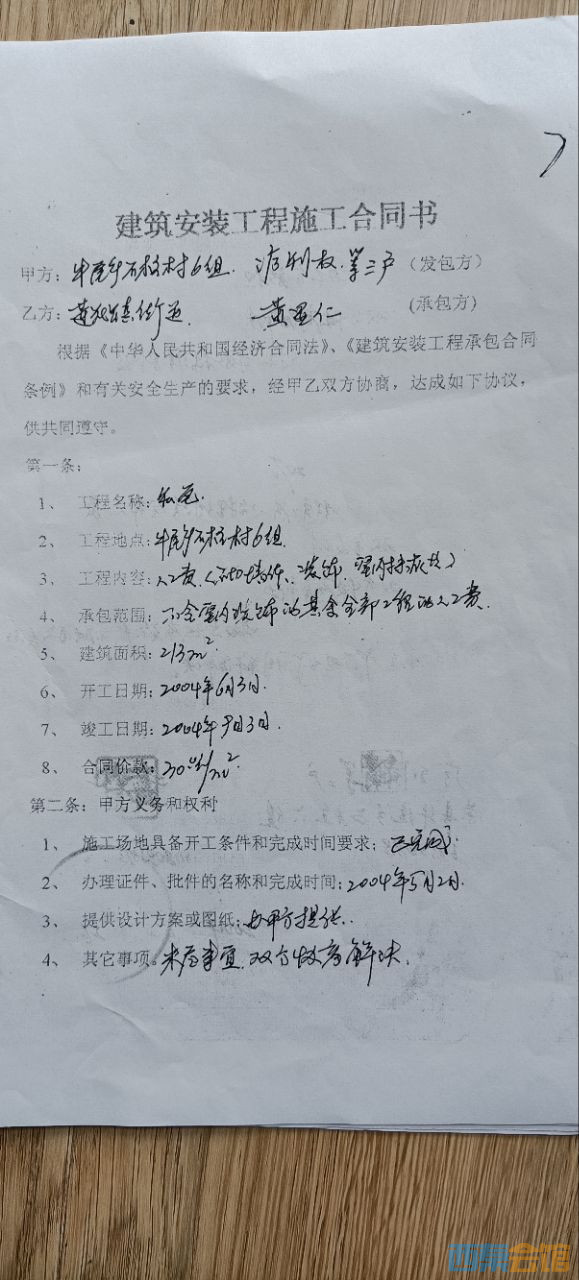 建筑安装工程施工合同书
甲方：牛尾乡石板村6组. 权.等三户（发包方）
乙方：镇街道. 黄 仁 （承包方）
根据《中华人民共和国经济合同法》、《建筑安装工程承包合同
条例》和有关安全生产的要求，经甲乙双方协商，达成如下协议，
供共同遵守。
第一条：
1、 工程名称：私宅.
2、 工程地点：牛尾乡石板村6组.
3、 工程内容：人工费
4、 承包范围：不含室内装饰的其余全部工程的人工费.
5、 建筑面积：213m²
6、 开工日期：2004年6月3日.
7、 竣工日期：2004年9月3日.
8、 合同价款：/m²
第二条：甲方义务和权利
1、 施工场地具备开工条件和完成时间要求；已完成
2、 办理证件、批件的名称和完成时间：2004年5月2日.
3、 提供设计方案或图纸：由甲方提供.
4、 其它事项。未尽事宜.双方协商解决.
西祠会馆